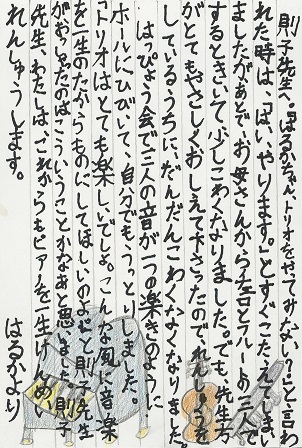 則子先生へ。「はるかちゃん、トリオをやてみない?」と言わ
れた時は、「はい、やります。」とすぐこたえてしまい
ましたが、あとでお母さんから左合とフルートの三人で
するときいて少しこわくなりました。でも、先生方
がとてもやさしくおしえて下さったので、れんしゅう
しているうちに、だんだんこわくなくなりました。
はっぴょう会で三人の音が一つの楽きのように
ホールにひびいて、自分でもうっとりしました。
「トリオはとても楽しいでしょ。こんな風に音楽
を一生のたからものにしてほしいのよ。」と則子先生
がおっしゃったのはこういうことかなあと思いました。則子
先生、わたしは、これからもピアノを一生けんめい
れんしゅうします。
はるかより